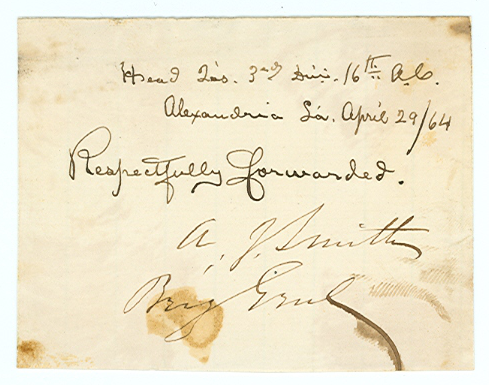 Head Qrs. 3rd Div. 16th A.C.
Alexandria La. April 29/64
Respectfully forwarded.
A. J. Smith
Brig Genl